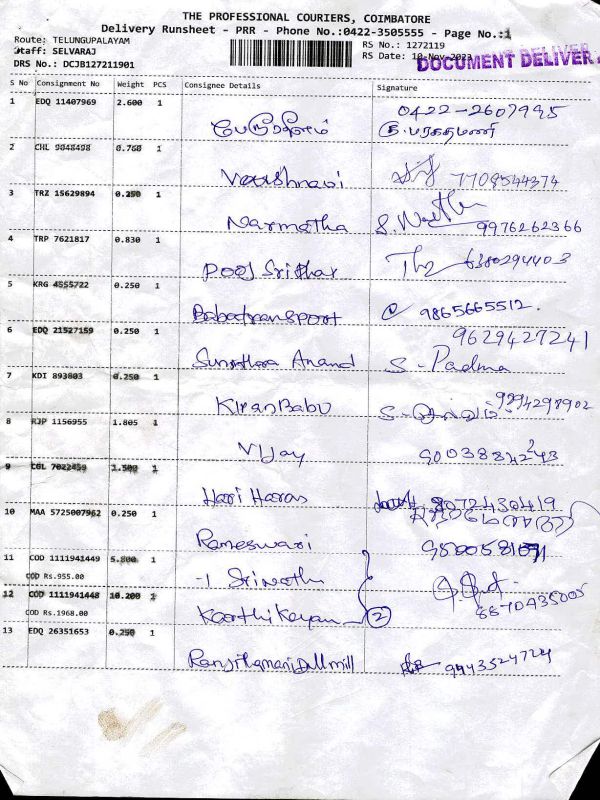 THE PROFESSIONAL COURIERS, COIMBATORE
Delivery Runsheet - PRR - Phone No.:0422-3505555 - Page No.:1
Route: TELUNGUPALAYAM
Staff: SELVARAJ
DRS No.: DCJB127211901
RS No.: 1272119
RS Date: 10-Nov-2023
DOCUMENT DELIVER
S No Consignment No Weight PCS Consignee Details Signature
1 EDQ 11407969 2.600 1
0422-2607995
2 CHL 9848498 0.760 1
Vaishnavi 7708544374
3 TRZ 15629894 0.250 1
Narmatha 9976262366
4 TRP 7621817 0.830 1
Pooj Sridhar 6380294403
5 KRG 4555722 0.250 1
Baba transport 9865665512.
6 EDQ 21527159 0.250 1
9629427241
Anand S - Padma
7 KDI 893803 0.250 1
Kiran Babu 9294298902
8 RJP 1156955 1.805 1
Vijay
9 CGL 7022459 1.500 1
Hari Haran 8072430419
10 MAA 5725007962 0.250 1
Rameswari
11 COD 1111941449 5.800 1
COD Rs.955.00
12 COD 1111941448 10.200 1
Karthikeyan 2 8870435005
COD Rs.1968.00
13 EDQ 26351653 0.250 1
9943524724